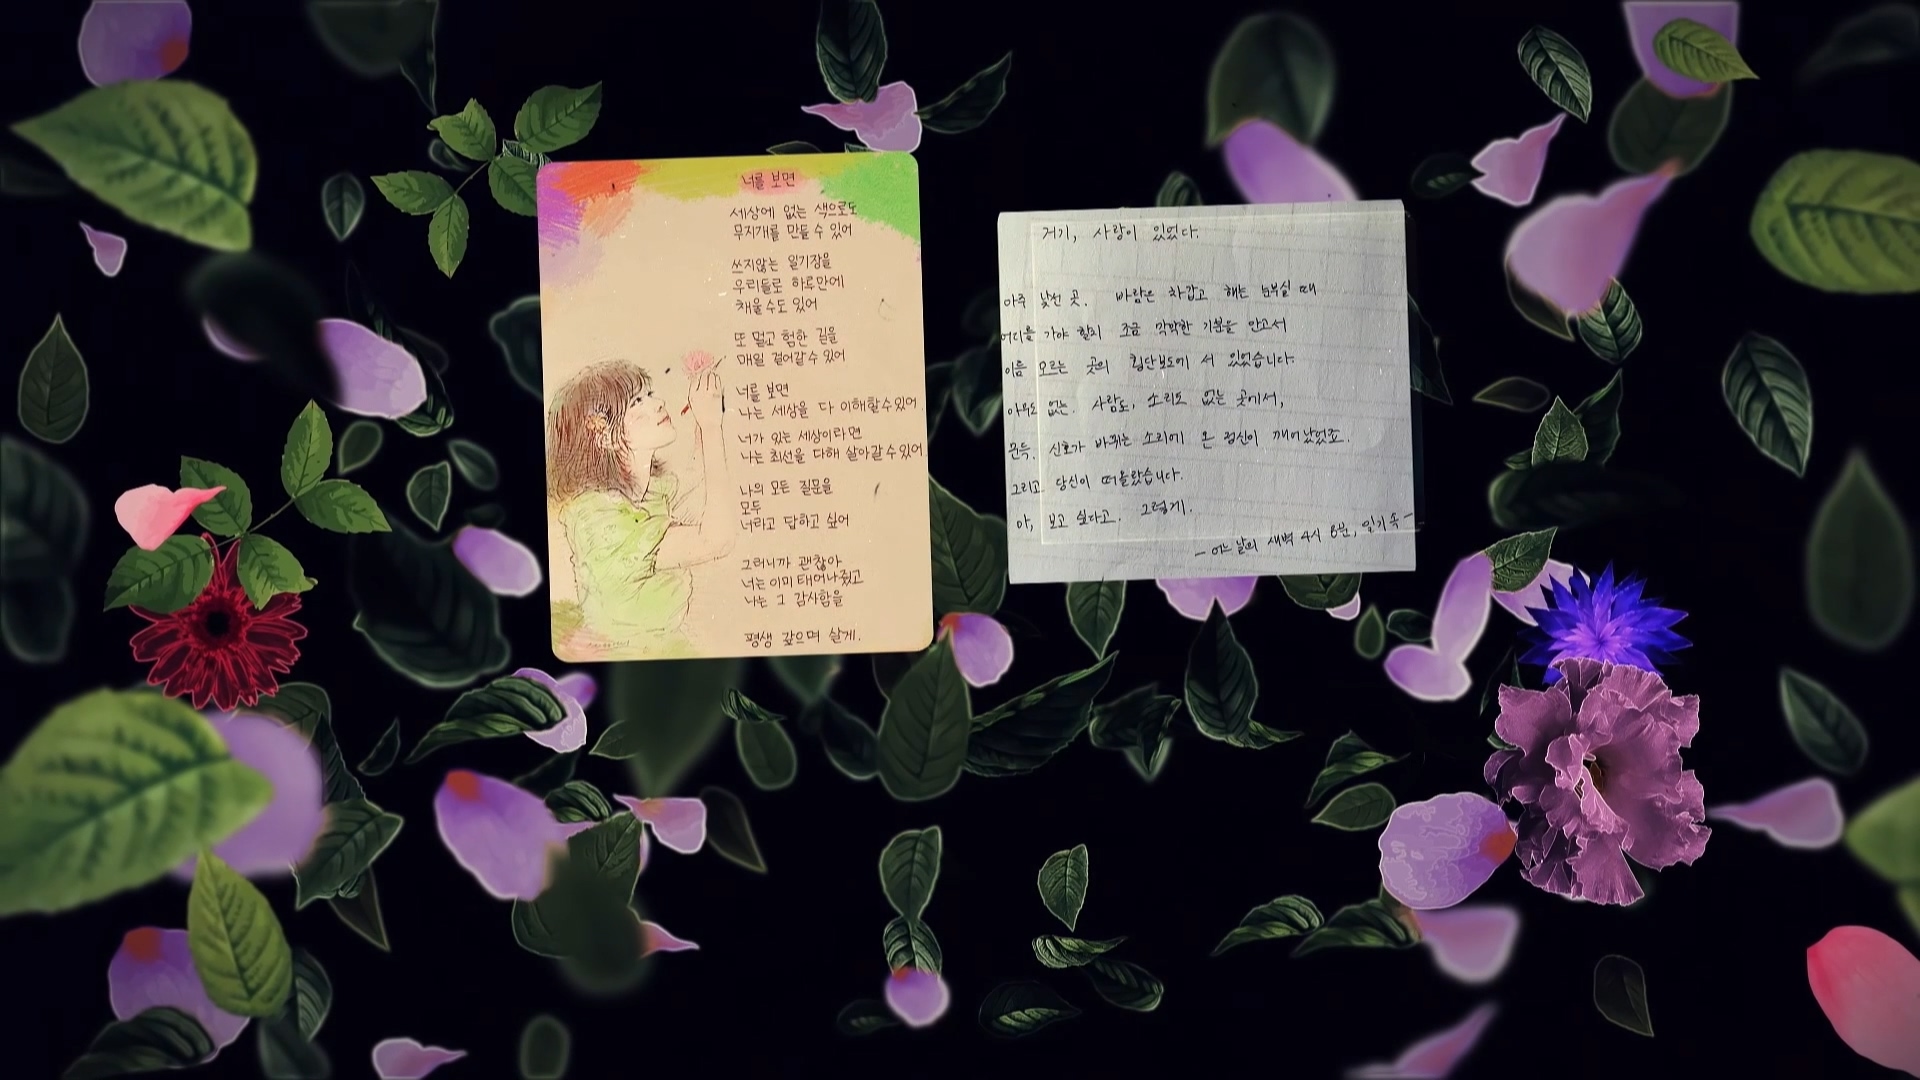 너를 보면
세상에 없는 색으로도
무지개를 만들 수 있어
쓰지않는 일기장을
우리들로 하루만에
채울수도 있어
또 멀고 험한 길을
매일 걸어갈수 있어
너를 보면
나는 세상을 다 이해할수있어.
너가 있는 세상이라면
나는 최선을 다해 살아갈수있어.
나의 모든 질문을
모두
너라고 답하고 싶어
그러니까 괜찮아
너는 이미 태어나줬고
나는 그 감사함을
평생 갚으며 살게.
거기, 사랑이 있었다.
아주 낯선 곳. 바람은 차갑고 해는 눈부실 때
어디를 가야 할지 조금 막막한 기분을 안고서
이름 모르는 곳의 횡단보도에 서 있었습니다.
아무도 없는. 사람도, 소리도 없는 곳에서,
문득. 신호가 바뀌는 소리에 온 정신이 깨어났었죠.
그리고 당신이 떠올랐습니다.
아, 보고 싶다고. 그렇게.
- 어느 날의 새벽 4시 8분, 일기 속 -